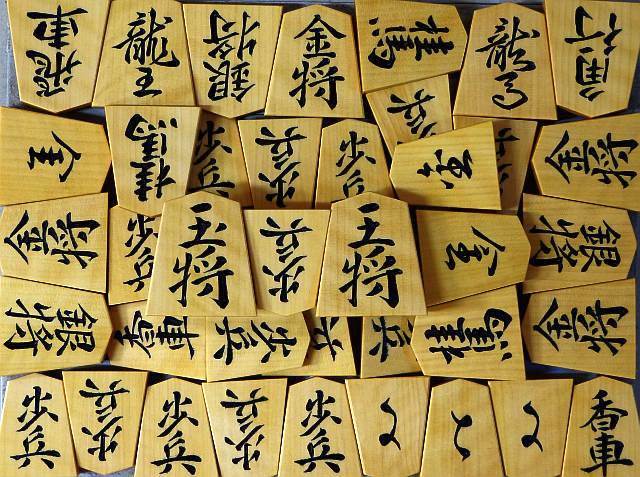 飛車
龍王
銀将
金将
桂馬
龍馬
角行
全
桂馬
歩兵
歩兵
歩兵
歩兵
金将
金将
歩兵
王将
歩兵
王将
全
銀将
銀将
香車
歩兵
歩兵
金将
歩兵
歩兵
歩兵
歩兵
歩兵
と
と
と
香車